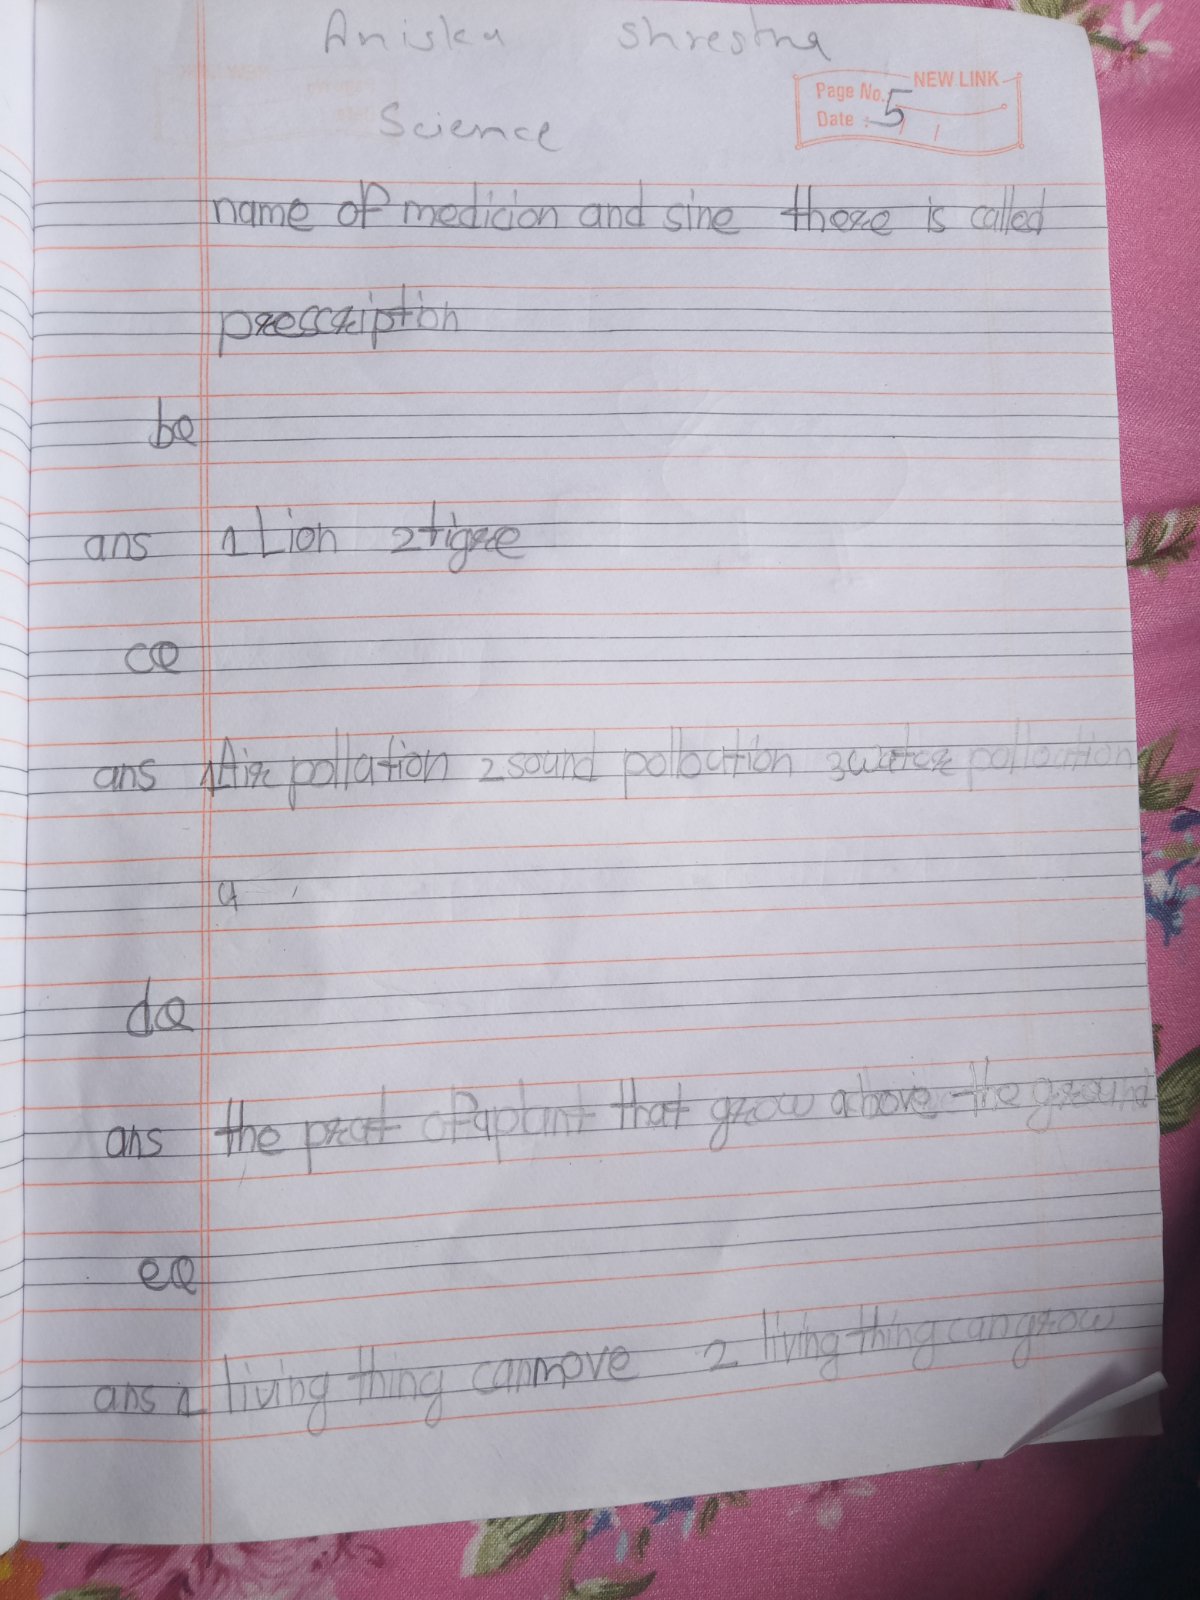 Aniska Shrestha
NEW LINK
Page No. 5
Date : / /
Science
name of medicion and sine there is called
presscription
bQ
ans 1 Lion 2 tigre
cQ
ans 1 Air pollation 2 sound polloution 3 water polloution
4
dQ
ans the prat of aplant that grow above the ground
eQ
ans 1 living thing canmove 2 living thing cangrow